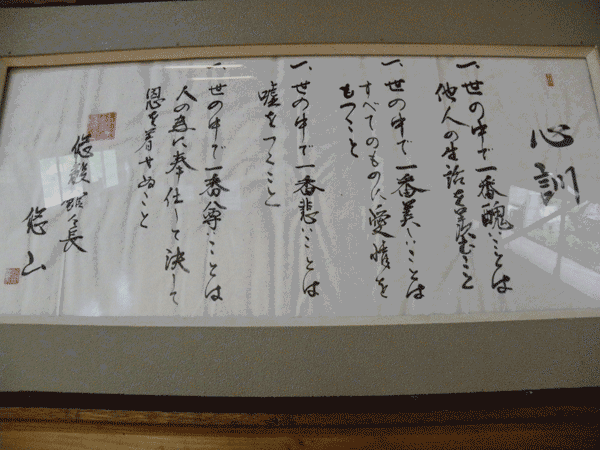 心訓
一、世の中で一番醜いことは
他人の生活を羨むこと
一、世の中で一番美しいことは
すべてのものに愛情を
もつこと
一、世の中で一番悲しいことは
嘘をつくこと
一、世の中で一番尊いことは
人の為に奉仕して決して
恩を着せぬこと
悠山